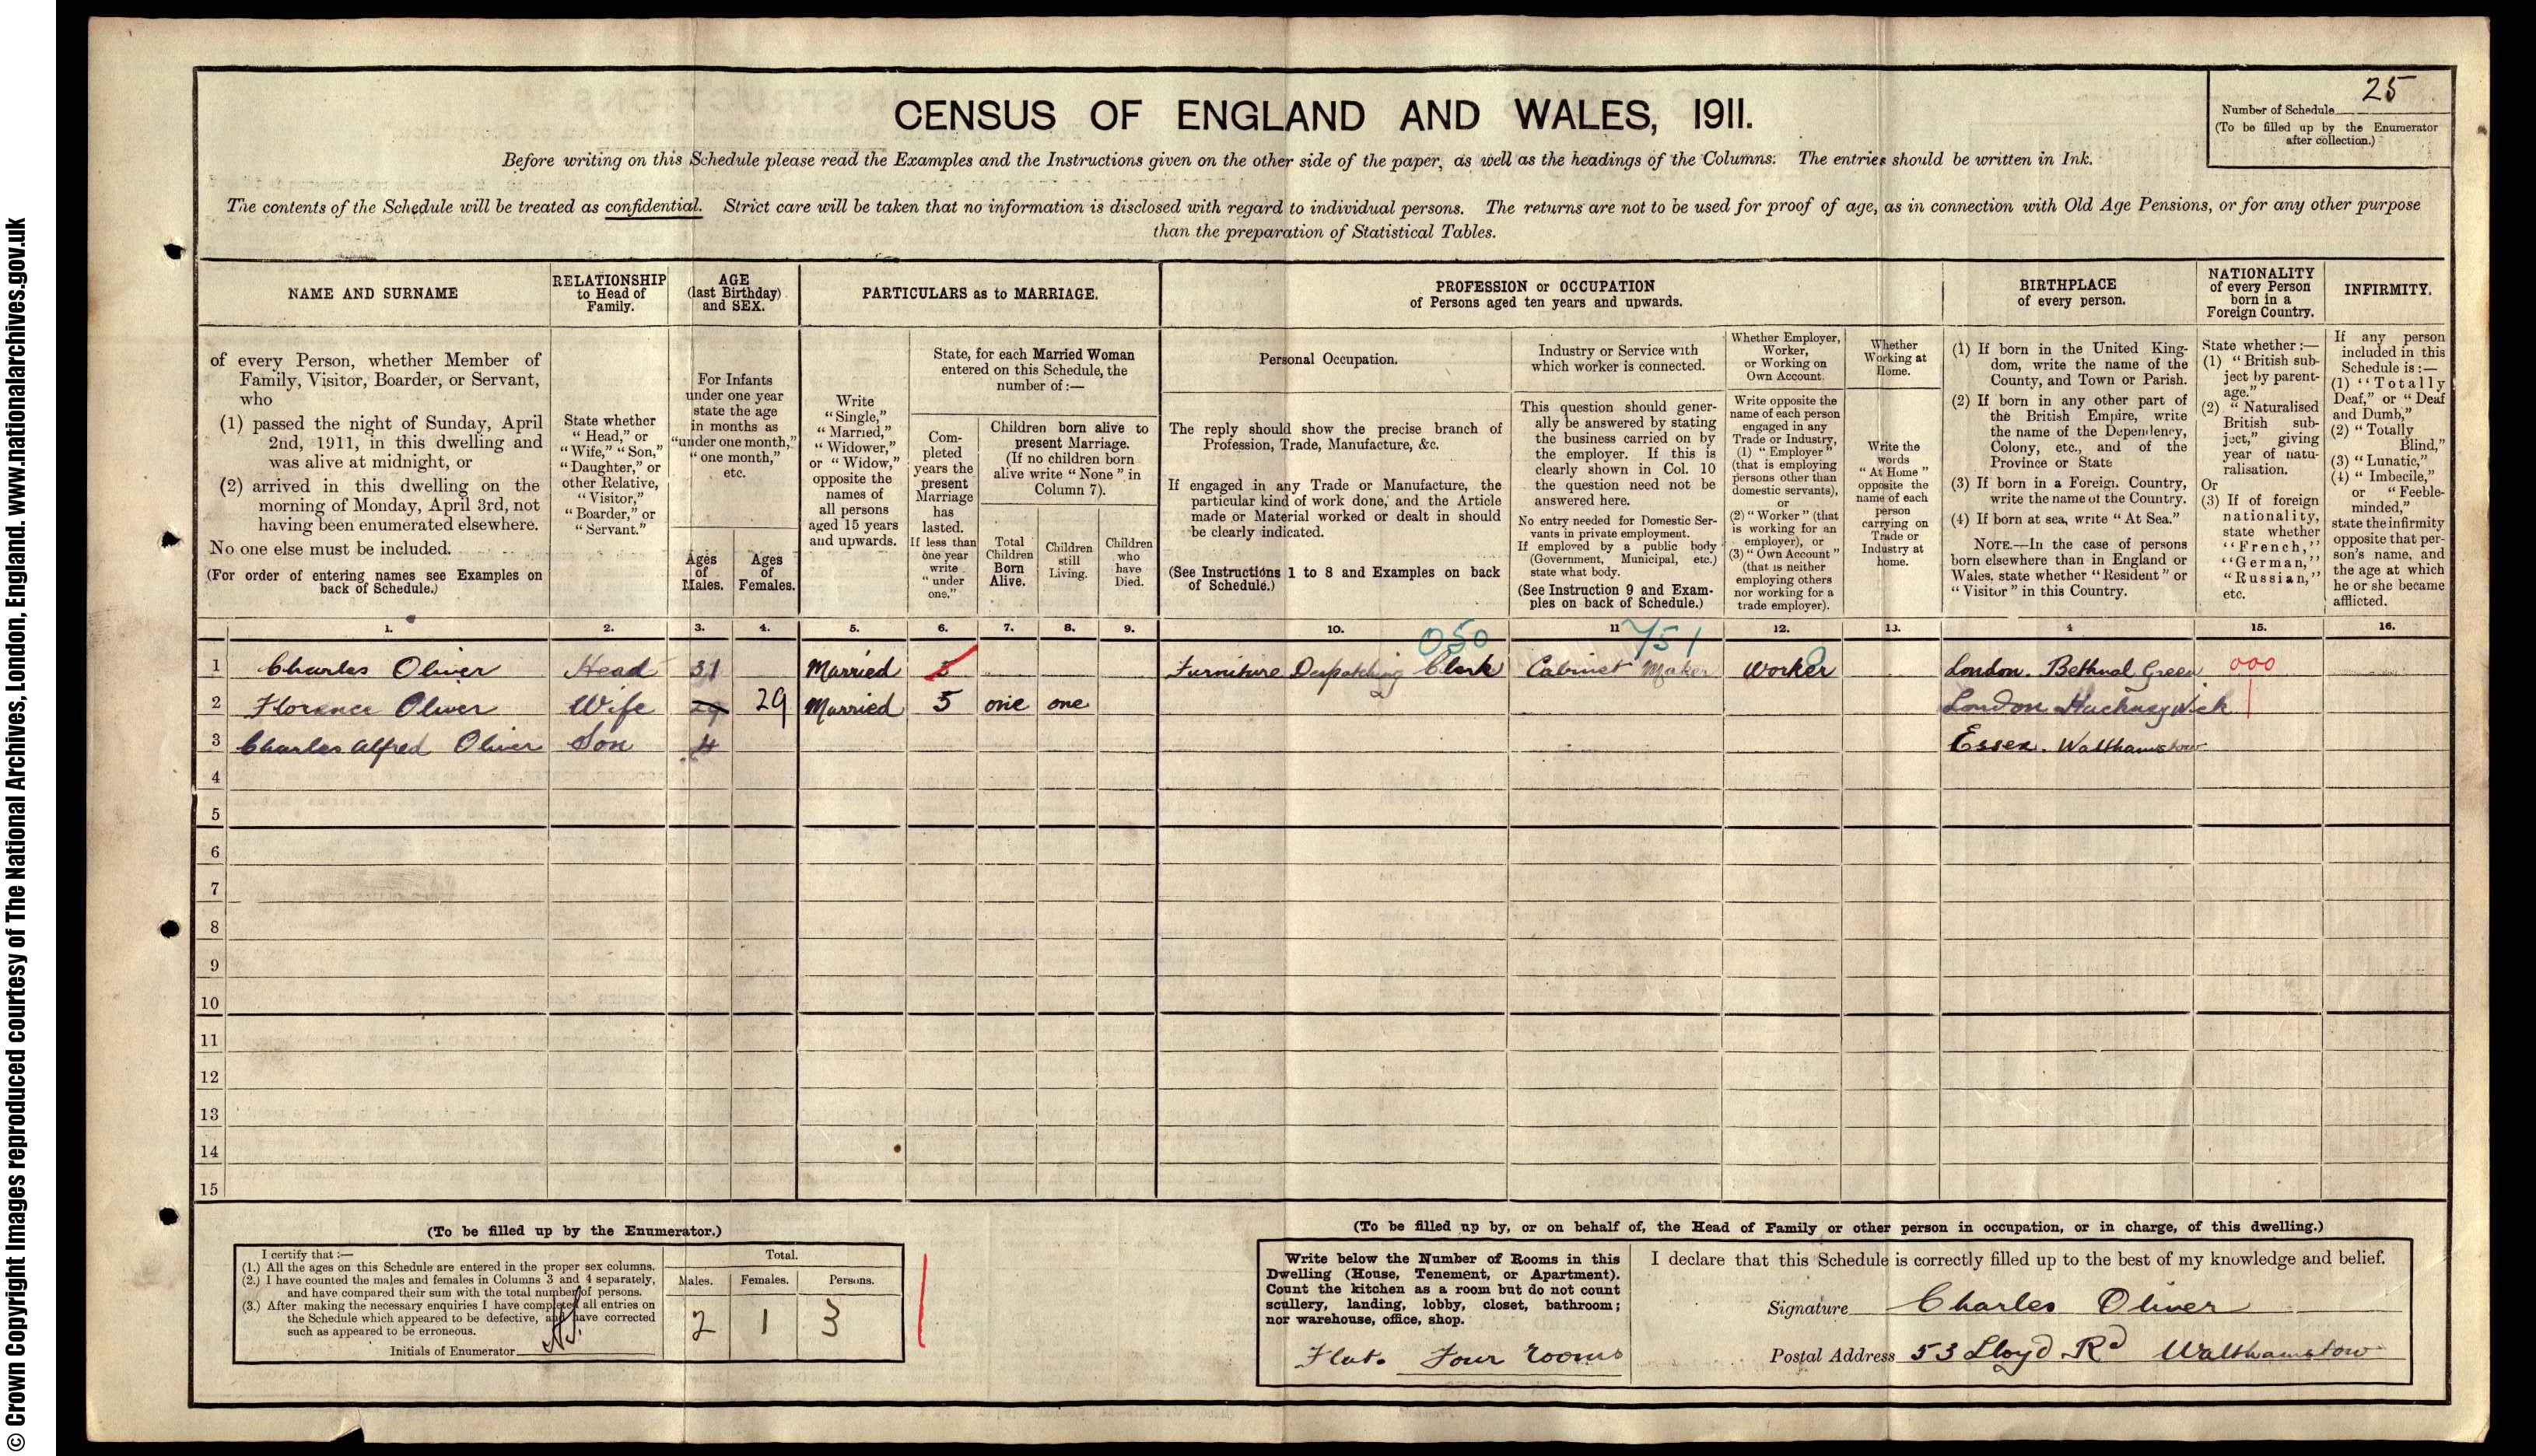 © Crown Copyright Images reproduced courtesy of The National Archives, London, England. www.nationalarchives.gov.uk
CENSUS OF ENGLAND AND WALES, 1911.
25
Number of Schedule
(To be filled up by the Enumerator
after collection.)
Before writing on this Schedule please read the Examples and the Instructions given on the other side of the paper, as well as the headings of the Columns. The entries should be written in Ink.
The contents of the Schedule will be treated as confidential. Strict care will be taken that no information is disclosed with regard to individual persons. The returns are not to be used for proof of age, as in connection with Old Age Pensions, or for any other purpose
than the preparation of Statistical Tables.
NAME AND SURNAME
of every Person, whether Member of
Family, Visitor, Boarder, or Servant,
who
(1) passed the night of Sunday, April
2nd, 1911, in this dwelling and
was alive at midnight, or
(2) arrived in this dwelling on the
morning of Monday, April 3rd, not
having been enumerated elsewhere.
No one else must be included.
(For order of entering names see Examples on
back of Schedule.)
RELATIONSHIP
to Head of
Family.
State whether
"Head," or
"Wife," "Son,"
"Daughter," or
other Relative,
"Visitor,"
"Boarder," or
"Servant."
AGE
(last Birthday)
and SEX.
For Infants
under one year
state the age
in months as
"under one month,"
"one month,"
etc.
Ages
of
Males.
Ages
of
Females.
PARTICULARS as to MARRIAGE.
Write
"Single,"
"Married,"
"Widower,"
or "Widow,"
opposite the
names of
all persons
aged 15 years
and upwards.
State, for each Married Woman
entered on this Schedule, the
number of:—
Com-
pleted
years the
present
Marriage
has
lasted.
If less than
one year
write
"under
one."
Children born alive to
present Marriage.
(If no children born
alive write "None" in
Column 7).
Total
Children
Born
Alive.
Children
still
Living.
Children
who
have
Died.
PROFESSION or OCCUPATION
of Persons aged ten years and upwards.
Personal Occupation.
The reply should show the precise branch of
Profession, Trade, Manufacture, &c.
If engaged in any Trade or Manufacture, the
particular kind of work done, and the Article
made or Material worked or dealt in should
be clearly indicated.
(See Instructions 1 to 8 and Examples on back
of Schedule.)
Industry or Service with
which worker is connected.
This question should gener-
ally be answered by stating
the business carried on by
the employer. If this is
clearly shown in Col. 10
the question need not be
answered here.
No entry needed for Domestic Ser-
vants in private employment.
If employed by a public body
(Government, Municipal, etc.)
state what body.
(See Instruction 9 and Exam-
ples on back of Schedule.)
Whether Employer,
Worker,
or Working on
Own Account.
Write opposite the
name of each person
engaged in any
Trade or Industry,
(1) "Employer"
(that is employing
persons other than
domestic servants),
or
(2) "Worker" (that
is working for an
employer), or
(3) "Own Account"
(that is neither
employing others
nor working for a
trade employer).
Whether
Working at
Home.
Write the
words
"At Home"
opposite the
name of each
person
carrying on
Trade or
Industry at
home.
BIRTHPLACE
of every person.
(1) If born in the United King-
dom, write the name of the
County, and Town or Parish.
(2) If born in any other part of
the British Empire, write
the name of the Dependency,
Colony, etc., and of the
Province or State
(3) If born in a Foreign Country,
write the name of the Country.
(4) If born at sea, write "At Sea."
NOTE.—In the case of persons
born elsewhere than in England or
Wales, state whether "Resident" or
"Visitor" in this Country.
NATIONALITY
of every Person
born in a
Foreign Country.
State whether:—
(1) "British sub-
ject by parent-
age."
(2) "Naturalised
British sub-
ject," giving
year of natu-
ralisation.
Or
(3) If of foreign
nationality,
state whether
"French,"
"German,"
"Russian,"
etc.
INFIRMITY.
If any person
included in this
Schedule is:—
(1) "Totally
Deaf," or "Deaf
and Dumb,"
(2) "Totally
Blind,"
(3) "Lunatic,"
(4) "Imbecile,"
or "Feeble-
minded,"
state the infirmity
opposite that per-
son's name, and
the age at which
he or she became
afflicted.
1. 2. 3. 4. 5. 6. 7. 8. 9. 10. 11 12. 13. 4 15. 16.
050 751
1 Charles Oliver Head 31 Married 5 Furniture Despatching Clerk Cabinet Maker Worker London. Bethnal Green 000
2 Florence Oliver Wife 29 29 Married 5 one one London Hackney Wick
3 Charles Alfred Oliver Son 4 Essex. Walthamstow
4
5
6
7
8
9
10
11
12
13
14
15
(To be filled up by the Enumerator.)
I certify that:—
(1.) All the ages on this Schedule are entered in the proper sex columns.
(2.) I have counted the males and females in Columns 3 and 4 separately,
and have compared their sum with the total number of persons.
(3.) After making the necessary enquiries I have completed all entries on
the Schedule which appeared to be defective, and have corrected
such as appeared to be erroneous.
Initials of Enumerator
Total.
Males. Females. Persons.
2 1 3
(To be filled up by, or on behalf of, the Head of Family or other person in occupation, or in charge, of this dwelling.)
Write below the Number of Rooms in this
Dwelling (House, Tenement, or Apartment).
Count the kitchen as a room but do not count
scullery, landing, lobby, closet, bathroom;
nor warehouse, office, shop.
Flat. Four rooms
I declare that this Schedule is correctly filled up to the best of my knowledge and belief.
Signature Charles Oliver
Postal Address 53 Lloyd Rd Walthamstow